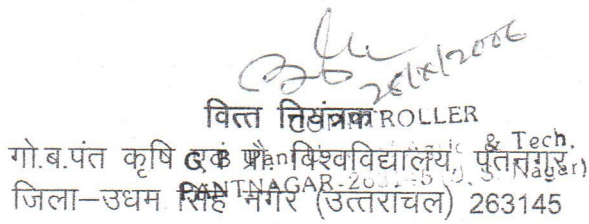 28/X/2006
वित्त नियंत्रक
गो.ब.पंत कृषि एवं प्रौ. विश्वविद्यालय, पंतनगर,
जिला–उधम सिंह नगर (उत्तरांचल) 263145
ROLLER
G B Pan & Tech.
PANTNAGAR-263145 Nagar)